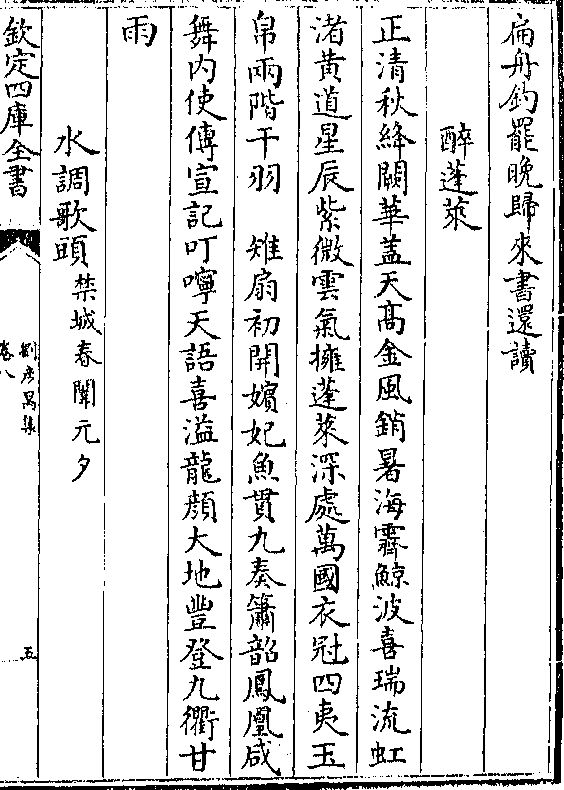 扁舟釣罷晚歸來書還讀
醉蓬萊
正清秋絳闕華盖天髙金風銷暑海霽鯨波喜瑞流虹
渚黄道星辰紫微雲氣擁蓬萊深處萬國衣冠四夷玉
帛兩階干羽　雉扇初開嬪妃魚貫九奏簫韶鳳凰咸
舞内使傳宣記叮嚀天語喜溢龍顔大地豐登九衢甘
雨
水調歌頭 禁城春闈元夕
欽定四庫全書
劉彥昺集
卷八
五